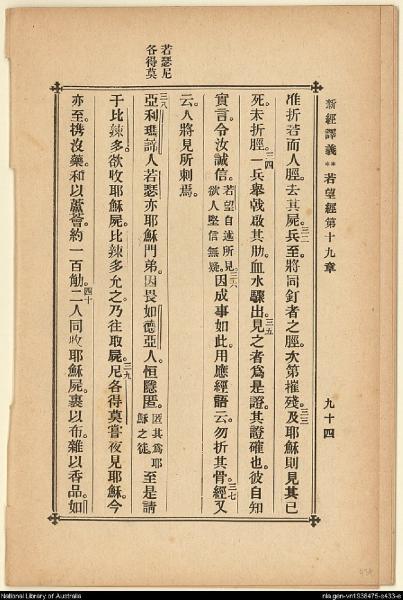 新經譯義 **若望經第十九章 九十四
准折若而人脛。去其屍。三二兵至。將同釘者之脛。次第摧殘。三三及耶穌則見其已
死。未折脛。三四一兵舉戟啟其肋。血水驟出。三五見之者爲是證。其證確也。彼自知
實言。令汝誠信。若望自述所見欲人堅信無疑。三六因成事如此。用應經語云。勿折其骨。三七經又
云。人將見所刺焉。
三八亞利瑪諦人若瑟。亦耶穌門弟。因畏如德亞人。恒隱匿。匿其爲耶穌之徒。至是請
于比辣多。欲收耶穌屍。比辣多允之。乃往取屍。三九尼各得莫嘗夜見耶穌。今
亦至。携沒藥。和以蘆薈。約一百觔。四十二人同收耶穌屍。裹以布。雜以香品。如
若瑟尼
各得莫
National Library of Australia
nla.gen-vn1938475-s433-e